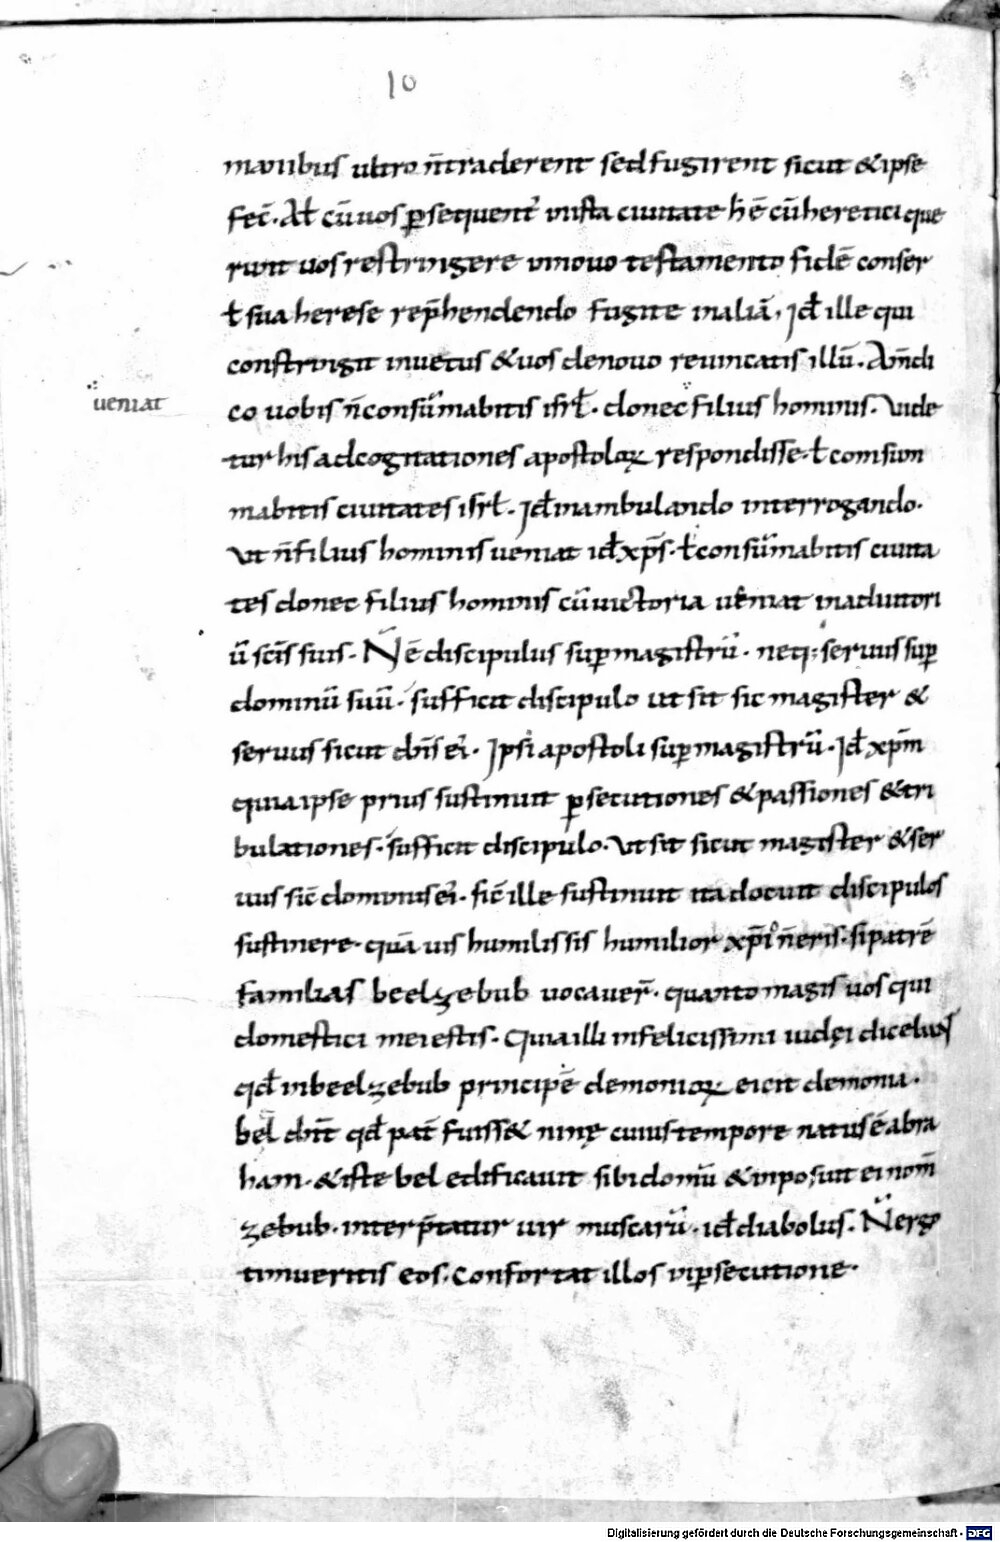 10
manibus ultro n̄ traderent sed fugirent sicut & ipse
fec̄. Aƚ cū uos ꝑsequent᷑ in ista ciuitate h̄ ē cū heretici que
runt uos restringere in nouo testamento fidē conser
ƚ sua herese rep̄hendendo fugite in aliā, Id̄ ille qui
constringit in uetus & uos de nouo reuincatis illū. Am̄ di
co uobis n̄ consūmabitis isrł. donec filius hominis. Uide
ueniat
tur his ad cognitationes apostoloꝝ respondisse. ƚ comsum
mabitis ciuitates isrł. Id̄ inambulando interrogando.
Ut n̄ filius hominis ueniat id̄ xp̄s. ƚ consūmabitis ciuita
tes donec filius hominis cū uictoria ueniat in adiutori
ū scīs suis. N̄ ē discipulus suꝑ magistrū. neq; seruus suꝑ
dominū suū. sufficit discipulo ut sit sic magister &
seruus sicut dn̄s ei᷑. Ipsi apostoli suꝑ magistrū. Id̄ xp̄m
quia ipse prius sustinuit ꝑsecutiones & passiones & tri
bulationes. sufficit discipulo. Ut sit sicut magister & ser
uus sic̄ dominus ei᷑. sic̄ ille sustinuit ita docuit discipulos
sustinere. quā uis humilis sis humilior xp̄i n̄ eris. si patrē
familias beelzebub uocauer̄. quanto magis uos qui
domestici mei estis. Quia illi infelicissimi iudęi dicebant
qd̄ in beelzebub principē demonioꝝ eicit demonia.
bel dn̄t qd̄ pat̄ fuiss& ninę cuius tempore natus ē abra
ham. & iste bel edificauit sibi domū & inposuit ei nom̄
zebub. interp̄tatur uir muscarū. id̄ diabolus. N̄ ergo
timueritis eos. Confortat illos in ꝑsecutione.
Digitalisierung gefördert durch die Deutsche Forschungsgemeinschaft - DFG